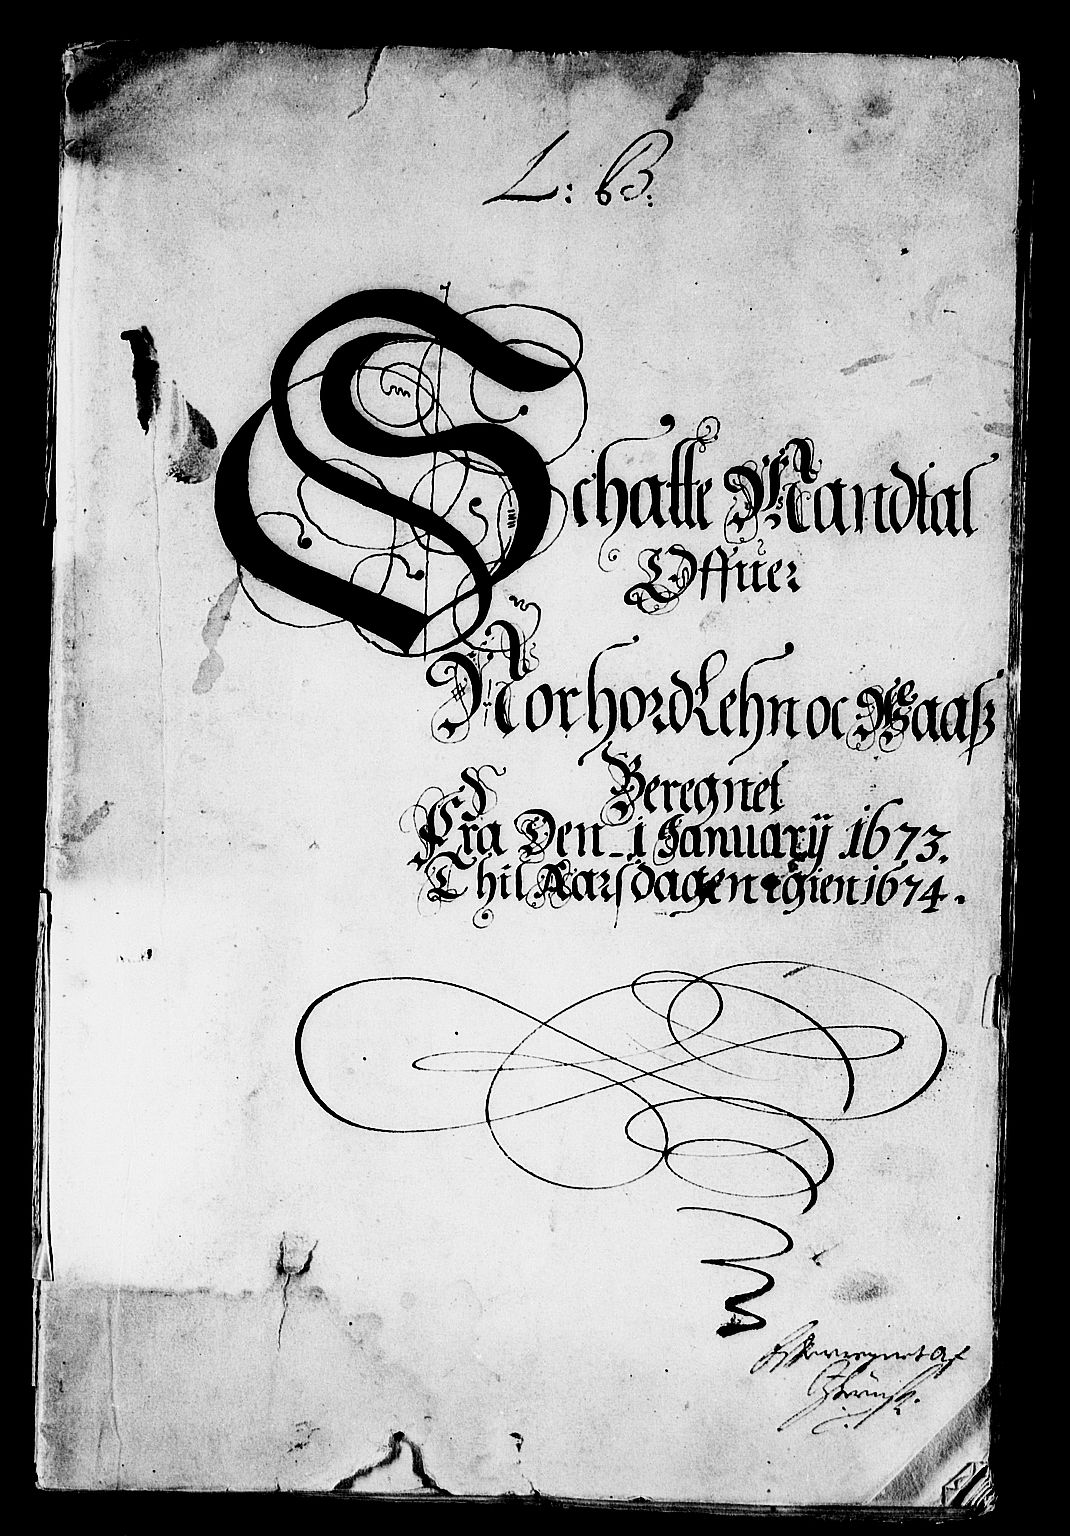 L: B.
Schatte Mandtal
Offuer
Norhordlehn oc Waaß
Beregnet
Fra Den 1 January 1673.
Thil Aarsdagen igien 1674.
Efterregnet af